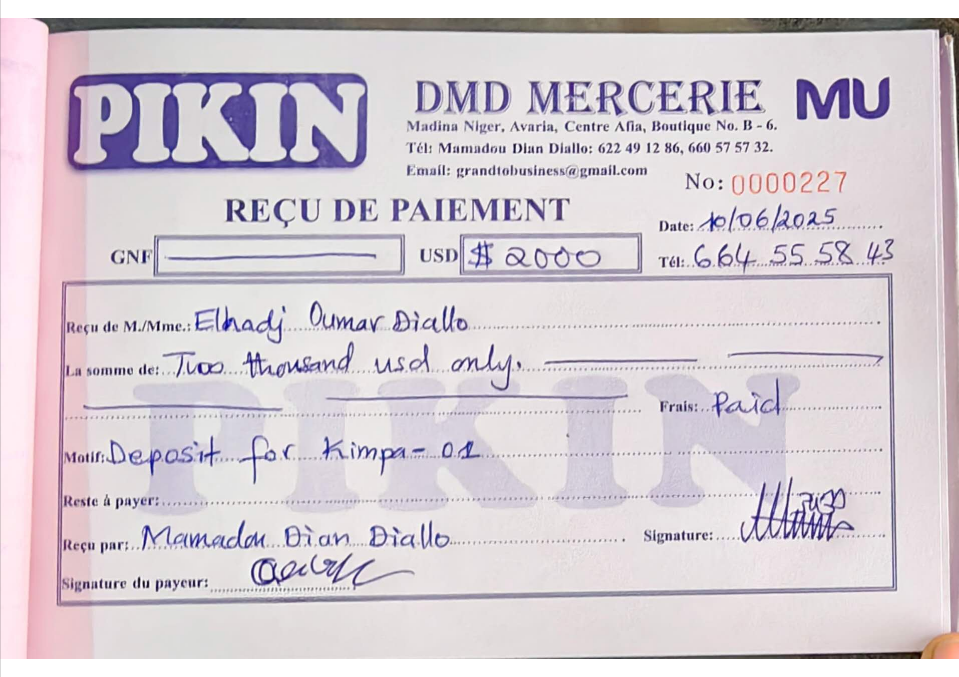 PIKIN
DMD MERCERIE MU
Madina Niger, Avaria, Centre Afia, Boutique No. B - 6.
Tél: Mamadou Dian Diallo: 622 49 12 86, 660 57 57 32.
Email: grandtobusiness@gmail.com
No: 0000227
REÇU DE PAIEMENT
Date: 10/06/2025
GNF USD $ 2000 Tél: 664 55 58 43
Reçu de M./Mme.: Elhadj Oumar Diallo
La somme de: Two thousand usd only.
Frais: Paid
Motif: Deposit for Kimpa-01
Reste à payer:
Reçu par: Mamadou Dian Diallo Signature:
Signature du payeur:
PIKIN